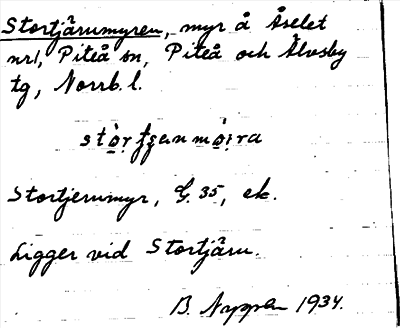 Stortjärnmyren, myr å Åselet
nr 1, Piteå sn, Piteå och Älvsby
tg, Norrb. l.
Stortjernmyr, G. 35, ek.
Ligger vid Stortjärn.
B. 1934.